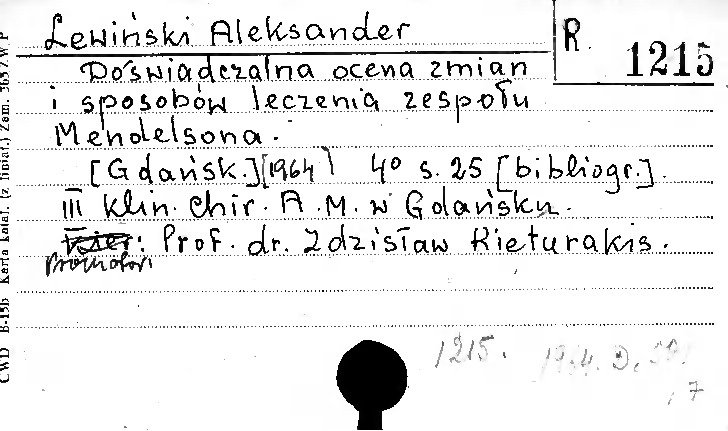 Lewiński Aleksander
R. 1215
Doświadczalna ocena zmian
i sposobów leczenia zespołu
Mendelsona.
[Gdańsk.][1964] 4º s. 25 [bibliogr.].
III Klin. Chir. A.M. w Gdańsku.
: Prof. dr. Zdzisław Kieturakis.
Promotor
1215. 1964. D.
7
CWD B-15b Karta katal. (z liniat.) Zam. 363/WP